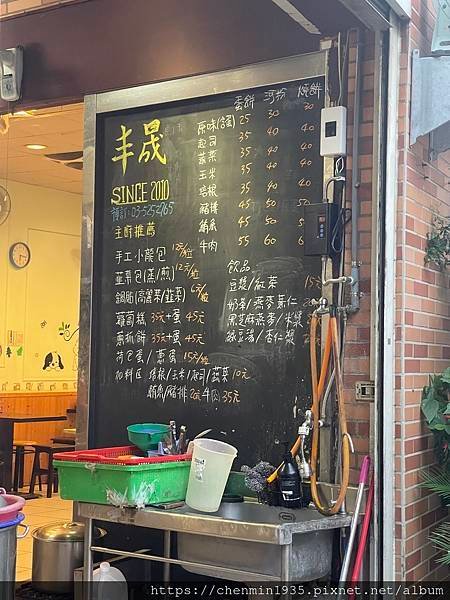 丰晟
SINCE 2010
預訂:03-5254765
主廚推薦
手工小籠包 12元/粒
韭菜包(蒸/煎) 12元/粒
鍋貼(高麗菜/韭菜) 6元/粒
蘿蔔糕 35元+蛋 45元
蔥抓餅 35元+蛋 45元
荷包蛋/蔥蛋 15元/粒
加料區 培根/玉米/起司/蔬菜 10元
鮪魚/豬排 20元 牛肉 35元
蛋餅 河粉 燒餅
原味(蛋) 25 30 30
起司 35 40 40
蔬菜 35 40 40
玉米 35 40 40
培根 35 40 40
豬排 45 50 50
鮪魚 45 50 50
牛肉 55 60 60
飲品
豆漿/紅茶 15元
奶茶/燕麥薏仁 20元
黑芝麻燕麥/米漿
綠豆湯/杏仁漿
https://chenmin1935.pixnet.net/album